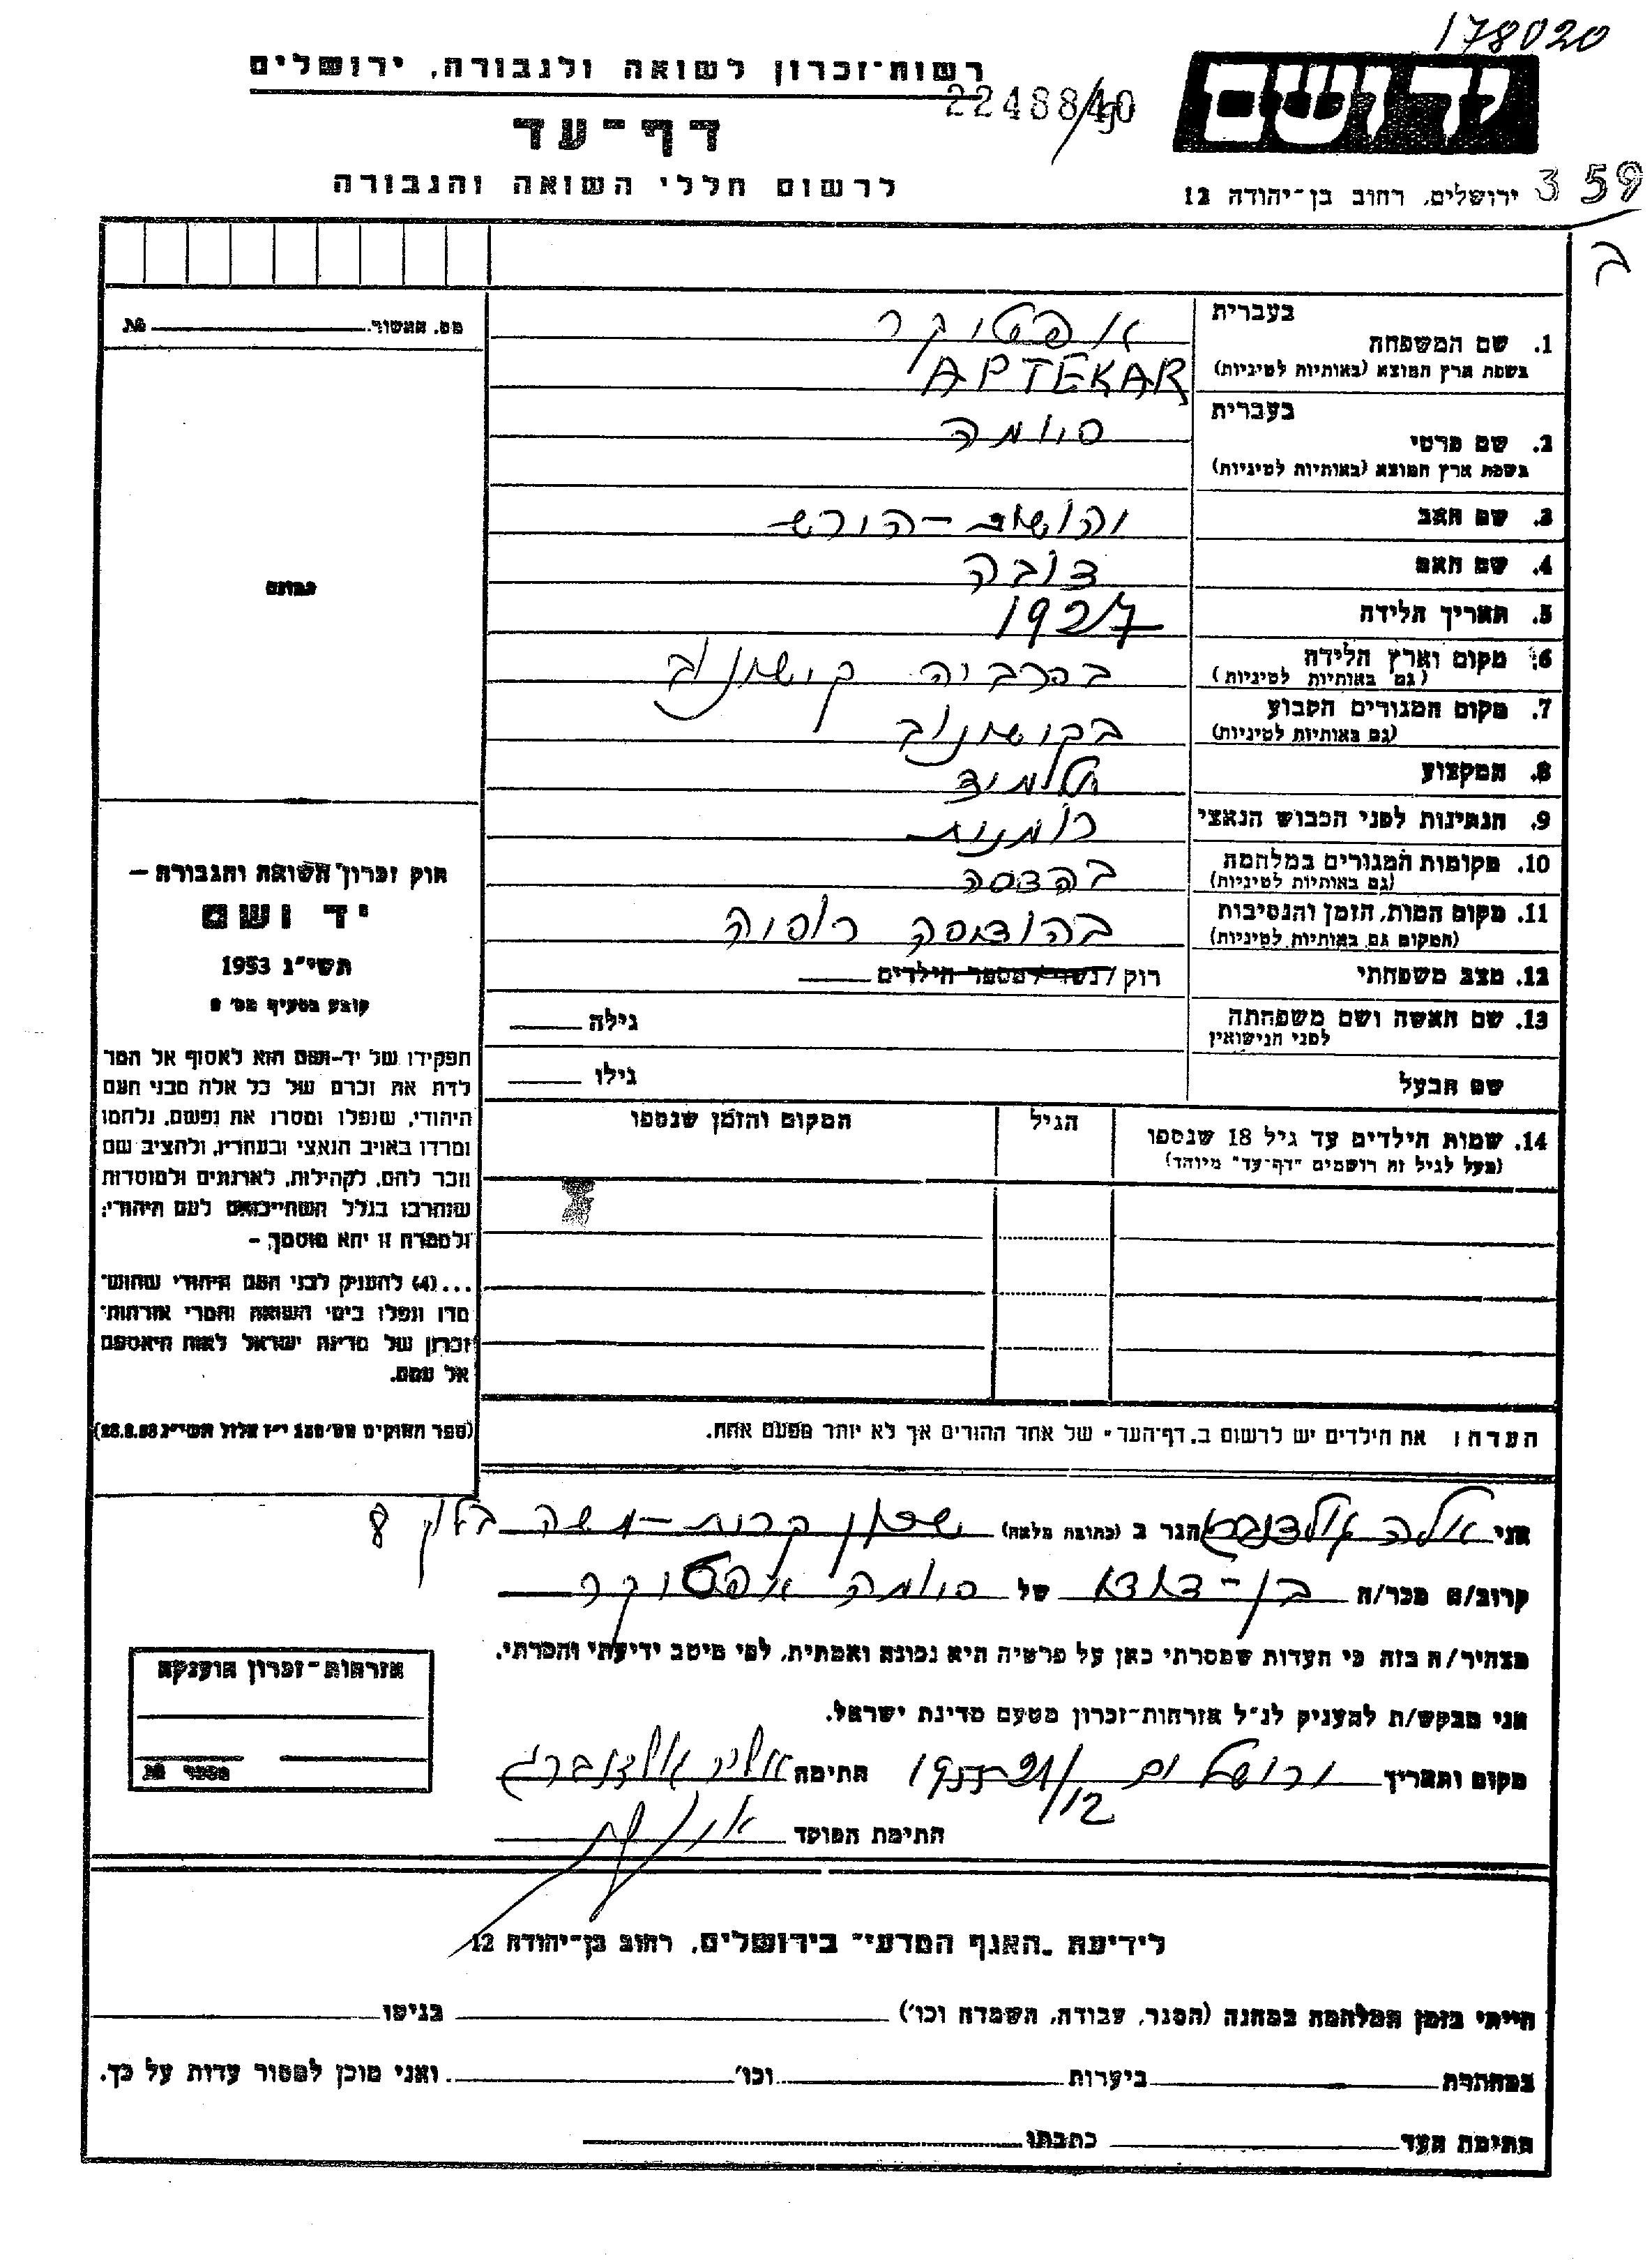 178020
רשות־זכרון לשואה ולגבורה, ירושלים
2248840
ידושם
דף־עד
לרשום חללי השואה והגבורה
ירושלים, רחוב בן־יהודה 12
359
ב
מס. האשור
בעברית
1. שם המשפחה
בשפת ארץ המוצא (באותיות לטיניות)
אפטיקר
APTEKAR
בעברית
2. שם פרטי
בשפת ארץ המוצא (באותיות לטיניות)
סיומה
3. שם האב
יהושוע - הירש
4. שם האם
צובה
5. תאריך הלידה
1927
6. מקום וארץ הלידה
(גם באותיות לטיניות)
בסרביה קישינוב
7. מקום המגורים הקבוע
(גם באותיות לטיניות)
בקישינוב
8. המקצוע
תלמיד
9. הנתינות לפני הכבוש הנאצי
רומנית
10. מקומות המגורים במלחמה
(גם באותיות לטיניות)
11. מקום המות, הזמן והנסיבות
(המקום גם באותיות לטיניות)
12. מצב משפחתי
רוק / נשוי / מספר הילדים
13. שם האשה ושם משפחתה
לפני הנישואין
גילה
שם הבעל
גילו
14. שמות הילדים עד גיל 18 שנספו
(מעל לגיל זה רושמים "דף־עד" מיוחד)
הגיל
המקום והזמן שנספו
תמונה
חוק זכרון השואה והגבורה –
יד ושם
תשי"ג 1953
קובע בסעיף מס'
תפקידו של יד-ושם הוא לאסוף אל המו
לדת את זכרם של כל אלה מבני העם
היהודי, שנפלו ומסרו את נפשם, נלחמו
ומרדו באויב הנאצי ובעוזריו, ולהציב שם
וזכר להם, לקהילות, לארגונים ולמוסדות
שנחרבו בגלל השתייכותם לעם היהודי;
ולמטרה זו יהא מוסמך, –
...(4) להעניק לבני העם היהודי שהוש־
מדו ונפלו בימי השואה והמרי אזרחות־
זכרון של מדינת ישראל לאות היאספם
אל עמם.
(ספר החוקים מס' 132 י"ז אלול תשי"ג 28.8.53)
הערה: את הילדים יש לרשום ב"דף־העד" של אחד ההורים אך לא יותר מפעם אחת.
אני אלה הגר ב (כתובת מלאה) שכון קרית-משה בלוק 8
קרוב/ה מכר/ה בן-דודא של סיומה אפטיקר
מצהיר/ה בזה כי העדות שמסרתי כאן על פרטיה היא נכונה ואמתית, לפי מיטב ידיעתי והכרתי.
אני מבקש/ת להעניק לנ"ל אזרחות־זכרון מטעם מדינת ישראל.
מקום ותאריך ירושלים חתימה
חתימת הפוקד
אזרחות־זכרון הוענקה
לידיעת "האגף המדעי" בירושלים, רחוב בן־יהודה 12
הייתי בזמן המלחמה במחנה (הסגר, עבודה, השמדה וכו') בגיטו
במחתרת ביערות וכו' ואני מוכן למסור עדות על כך.
חתימת העד כתבתו